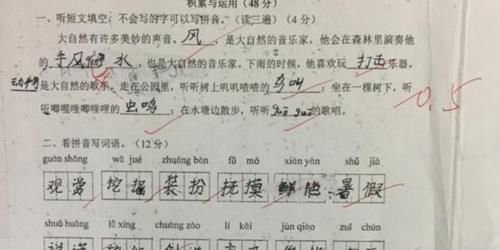 积累与运用（48分）
一、听短文填空，不会写的字可以写拼音。（读三遍）（4分）
大自然有许多美妙的声音。风，是大自然的音乐家，他会在森林里演奏他
的手风琴 水，也是大自然的音乐家。下雨的时候，他喜欢玩打击乐器。
动物是大自然的歌手。走在公园里，听听树上叽叽喳喳的鸟叫；坐在一棵树下，听
听唧哩哩唧哩哩的虫鸣；在水塘边散步，听听guō guō的歌唱。
0.5
二、看拼音写词语。（12分）
guān shǎng wā jué zhuāng bàn fǔ mō xiān yàn shǔ jià
观赏 挖掘 装扮 抚摸 鲜艳 暑假
shuō huǎng lǚ xíng chuàng zào lí kāi jùn qiào zuǐ chún